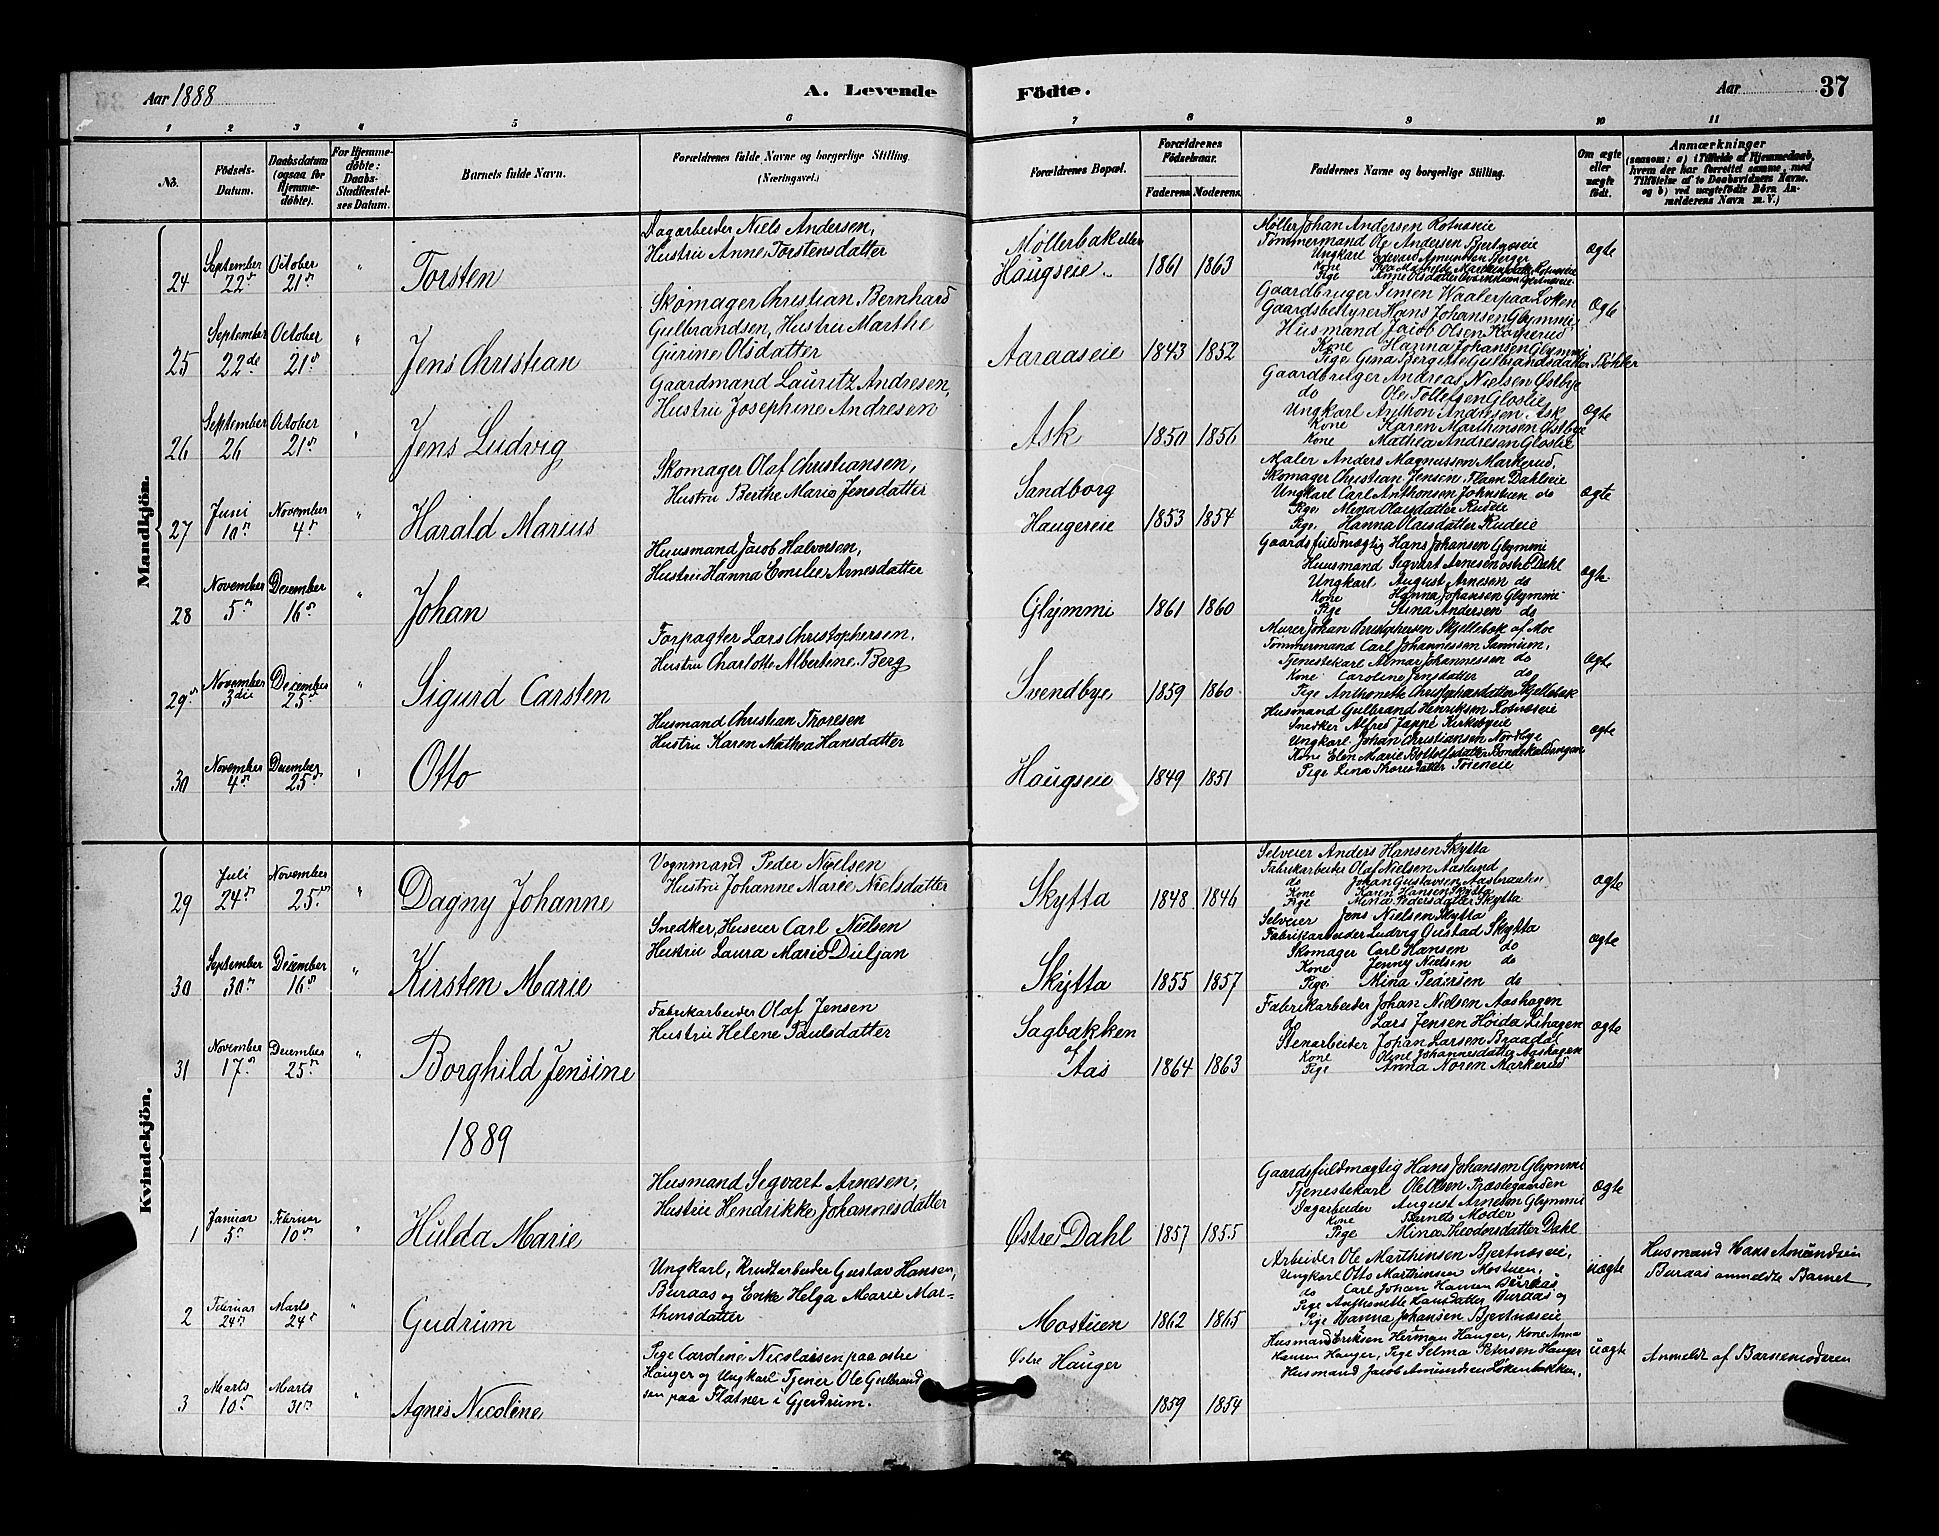 Aar 1888
A. Levende
Födte.
Aar
37
1 2 3 4 5 6 7 8 9 10 11
No.
Födsels-
Datum.
Daabsdatum
(ogsaa for
Hjemme-
döbte).
For Hjemme-
döbte:
Daabs-
Stadfæstel-
ses Datum.
Barnets fulde Navn.
Forældrenes fulde Navne og borgerlige Stilling.
(Næringsvei.)
Forældrenes Bopæl.
Forældrenes
Födselsaar.
Faderens. Moderens.
Faddernes Navne og borgerlige Stilling.
Om ægte
eller
uægte
født.
Anmærkninger
(saasom: a) i Tilfælde af Hjemmedaab,
hvem der har forrettet samme, med
Tilföielse af to Daabsvidners Navne.
og b) ved uægtefödte Börn An-
melderens Navn m. V.)
Mandkjön.
24
September
22
October
21
"
Torsten
Dagarbeider Niels Andersen,
Hustru Anne Torstensdatter
Møllerbak eller
Haugseie
1861 1863
Møller Johan Andersen Rotnæseie
Tømmermand Ole Andersen Bjertnæseie
Ungkarl Edevard Amundsen Berger
ægte
25
September
22de
October
21
"
Jens Christian
Skomager Christian Bernhard
Gulbrandsen, Hustru Marthe
Gurine Olsdatter
Aaraaseie
1843 1852
Gaardbruger Simen Waaler paa Løken
Gaardsbestyrer Hans Johansen Glymmi
Husmand Jacob Olsen
Kone Hanna Johansen Glymmi
Pige Gina Bergitte Gulbrandsdatter Bøhler
Ægte
26
September
26
October
21
"
Jens Ludvig
Gaardmand Lauritz Andresen,
Hustru Josephine Andresen
Ask
1850 1856
Gaardbruger Andreas Nielsen Østbye
do Ole Tollefsen Gloslie
Ungkarl Anthon Andresen Ask
Kone Karen Marthinsen Østbye
Kone Mathea Andresen Gloslie
Ægte
27
Juni
10
November
4
"
Harald Marius
Skomager Olaf Christiansen,
Hustru Berthe Marie Jensdatter
Sandborg
Haugereie
1853 1854
Maler Anders Magnussen Markerud,
Skomager Christian Jensen Flaen Dahleie
Ungkarl Carl Anthonsen Johnstuen do
Pige Mina Olausdatter Rudeie
Pige Hanna Olausdatter Rudeie
ægte
28
November
5
December
16
"
Johan
Huusmand Jacob Halvorsen,
Hustru Hanna Emilie Arnesdatter
Glymmi
1861 1860
Gaardsfuldmægtig Hans Johansen Glymmi
Huusmand Sigvart Arnesen østre Dahl
Ungkarl August Arnesen do
Kone Hanna Johansen Glymmi
Pige Stina Andersen do
ægte.
29
November
3die
December
25
"
Sigurd Carsten
Forpagter Lars Christophersen,
Hustru Charlotte Albertine Berg
Svendbye
1859 1860
Murer Johan Christophersen Skjellebek af Moe
Tømmermand Carl Johannessen Sannum,
Tjenestekarl Almar Johannessen do
Kone Caroline Jensdatter do
Pige Anthonette Christophersdatter Skjellebæk
Ægte
30
November
4
December
25
"
Otto
Husmand Christian Thoresen
Hustru Karen Mathea Hansdatter
Haugseie
1849 1851
Husmand Gulbrand Henriksen Rotnæseie
Snedker Alfred Jappe Kirkebyeie
Ungkarl Johan Christiansen Nordbye
Pige Lina Thoresdatter Tøieneie
ægte
Kvindekjön.
29
Juli
24
November
25
"
Dagny Johanne
Vognmand Peder Nielsen
Hustru Johanne Marie Nielsdatter
Skytta
1848 1846
Selveier Anders Hansen Skytta
Fabrikarbeider Olaf Nielsen Aaslund
do Johan Gustavsen Aasbraaten
Kone Karen Hansen Skytta
Pige Mina Pedersdatter Skytta
ægte
30
September
30
December
16
"
Kirsten Marie
Snedker, Huseier Carl Nielsen
Hustru Laura Marie Duljan
Skytta
1855 1857
Selveier Jens Nielsen Skytta
Fabrikarbeider Ludvig Oustad Skytta
Skomager Carl Hansen do
Kone Jenny Nielsen do
Pige Mina Pedersen do
ægte
31
November
17
December
25
"
Borghild Jensine
Fabrikarbeider Olaf Jensen
Hustru Helene Paulsdatter
Sagbakken
af
Aas
1864 1863
Fabrikarbeider Johan Nielsen Aashagen
do Lars Jensen Høida Lihagen
Stenarbeider Johan Larsen Braadal
Kone Oline Johannesdatter Aashagen
Pige Anna Noren Markerud
ægte
1889
1
Januar
5
Februar
10
"
Hulda Marie
Husmand Segvart Arnesen,
Hustru Hendrikke Johannesdatter
Østre Dahl
1857 1855
Gaardsfuldmægtig Hans Johansen Glymmi
Tjenestekarl Ole Olsen Præstegaarden
Dagarbeider August Arnesen Glymmi
Kone Barnets Moder
Pige Mina Theodorsdatter Dahl
Ægte
2
Februar
24
Marts
24
"
Gudrum
Ungkarl, Krudtarbeider Gustav Hansen,
Buraas og Enke Helga Marie Mar-
thinsdatter
Mostuen
1862 1865
Arbeider Ole Marthinsen Bjertnæseie,
Ungkarl Otto Marthinsen Mostuen,
do Carl Johan Hansen Buraas
Pige Anthonette Hansdatter Buraas og
Pige Hanna Johansen Bjertnæseie
uægte
Husmand Hans Amundsen
Buraas anmeldte Barnet
3
Marts
10
Marts
31
"
Agnes Nicoline
Pige Caroline Nicolaisen paa østre
Hauger og Ungkarl Tjener Ole Gulbrand
sen paa Flatner i Gjerdrum.
Østre Hauger
1859 1854
Husmand Eriksen Herman Hauger, Kone Anna
Hansen Hauger, Pige Selma Petersen Hauger
Husmand Jacob Amundsen Løkenbakken.
uægte
Anmeldt af Barnemoderen